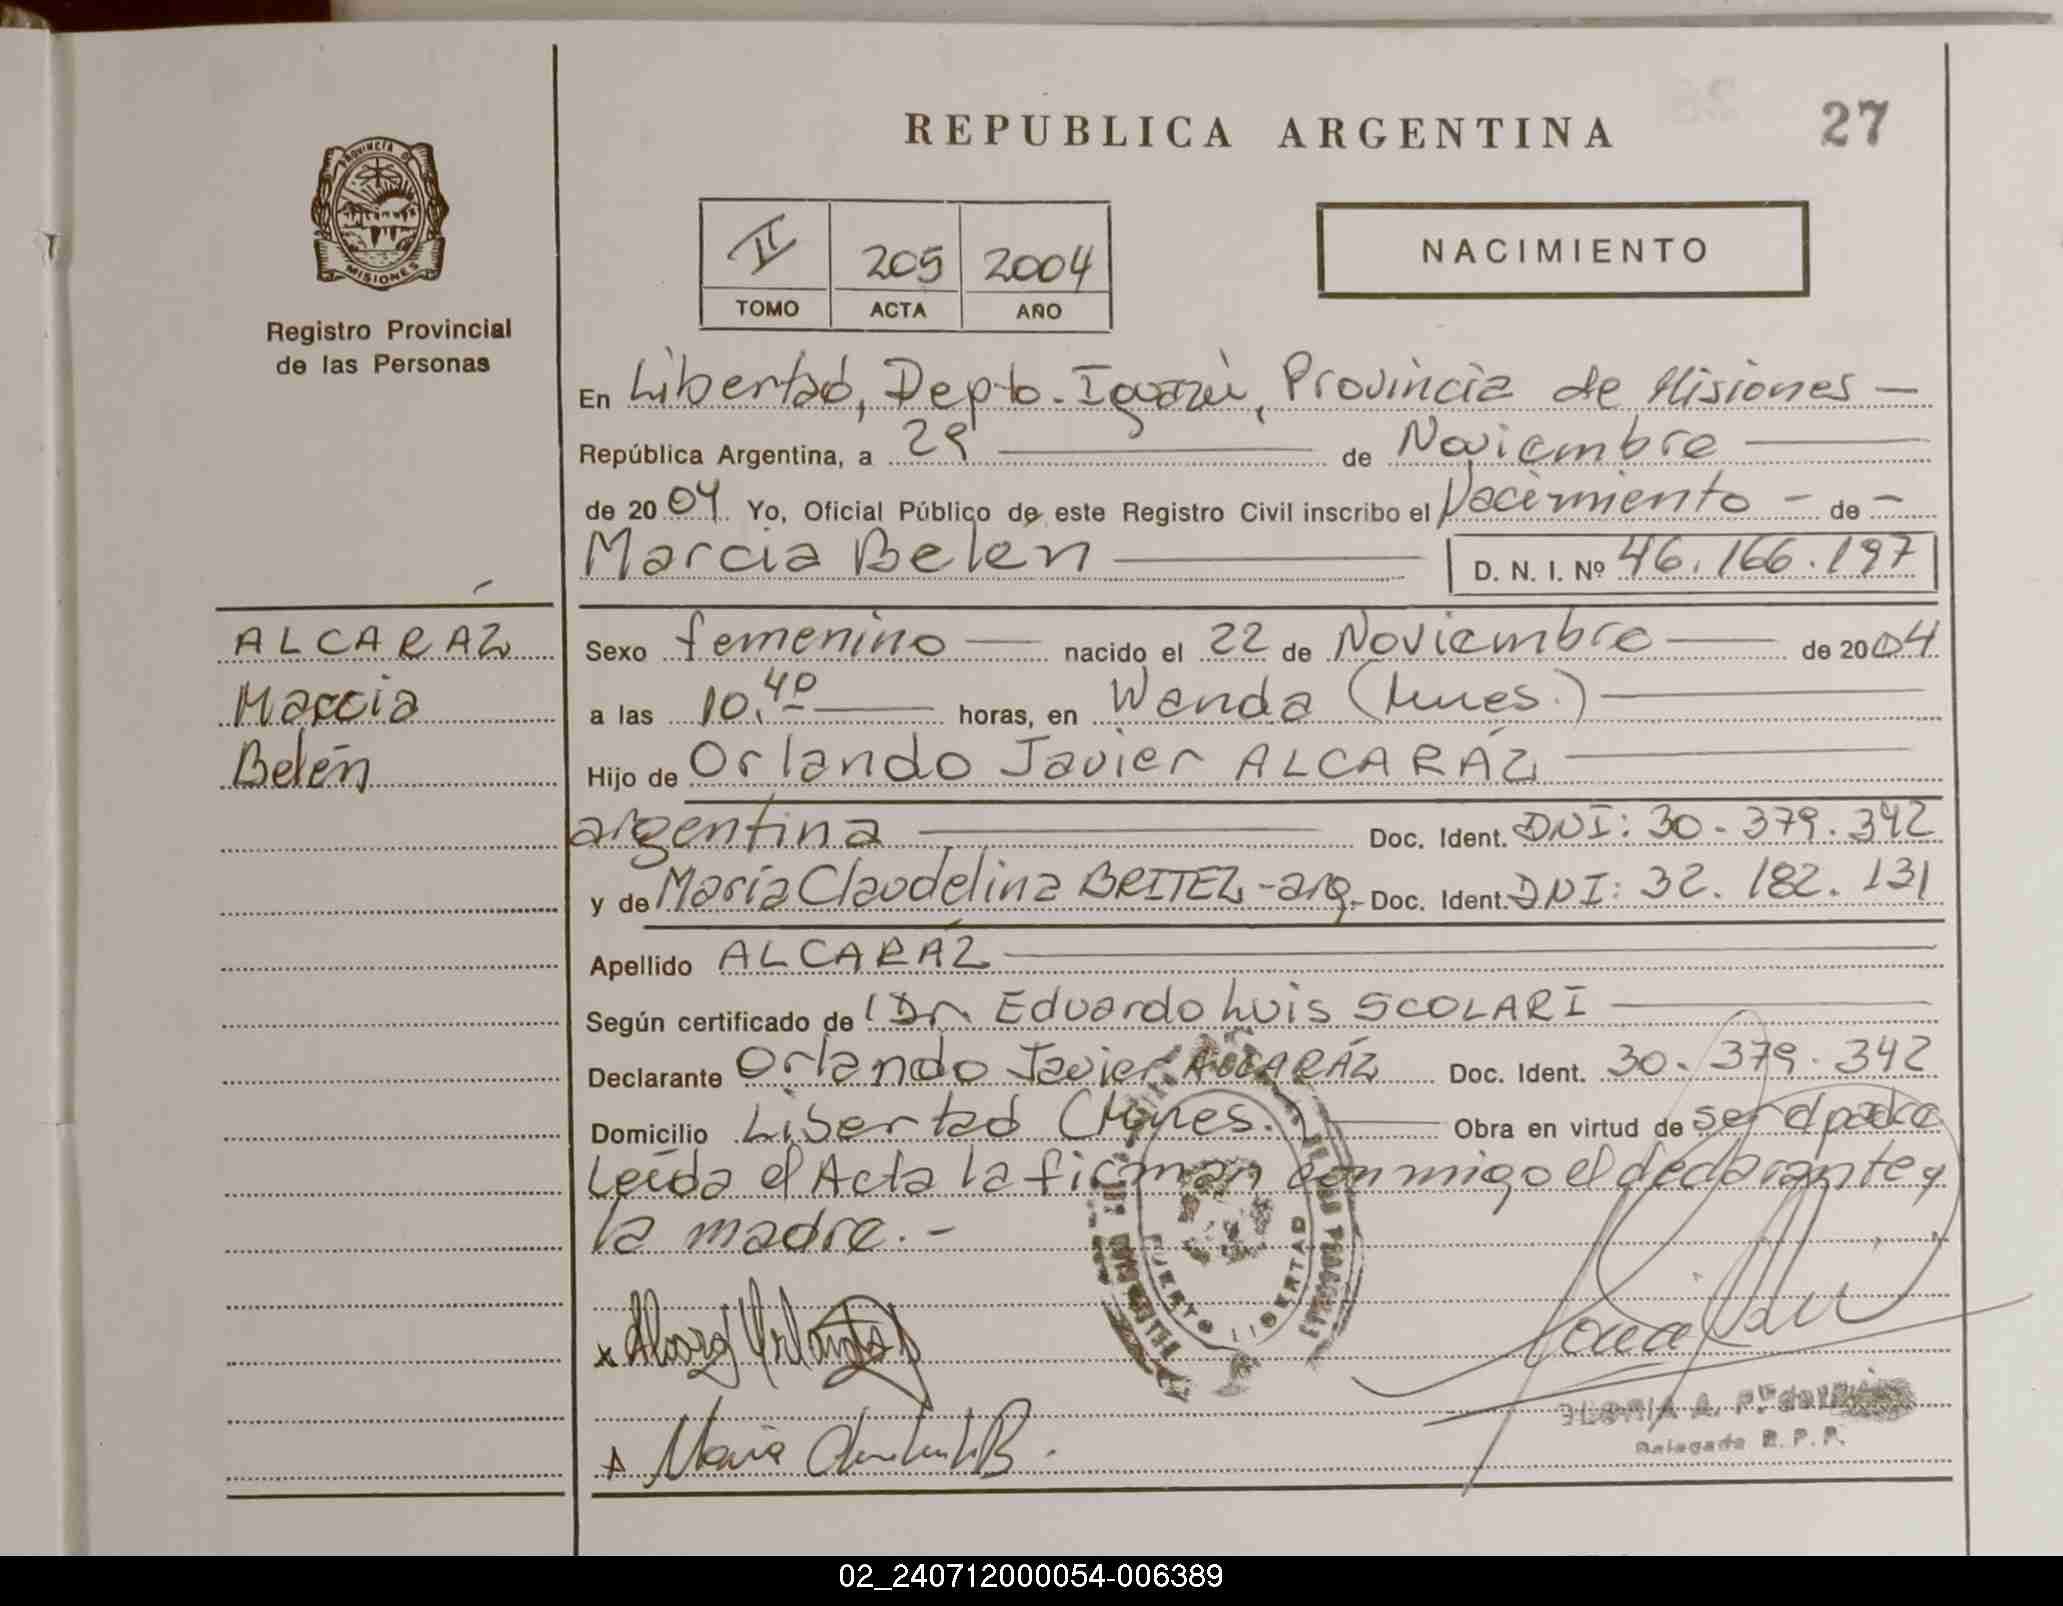 REPUBLICA ARGENTINA
27
PROVINCIA DE
MISIONES
Registro Provincial
de las Personas
II 205 2004
TOMO ACTA AÑO
NACIMIENTO
En Libertad, Depto. Iguazú, Provincia de Misiones —
República Argentina, a 29 — de Noviembre —
de 2004 Yo, Oficial Público de este Registro Civil inscribo el Nacimiento - de -
Marcia Belén — D. N. I. Nº 46.166.197
ALCARÁZ
Marcia
Belén
Sexo femenino — nacido el 22 de Noviembre — de 2004
a las 10,40 — horas, en Wanda (Mnes.) —
Hijo de Orlando Javier ALCARÁZ —
argentina — Doc. Ident. DNI: 30.379.342
y de María Claudelina BRITEZ - arg. - Doc. Ident. DNI: 32.182.131
Apellido ALCARÁZ —
Según certificado de Dr. Eduardo Luis SCOLARI —
Declarante Orlando Javier ALCARÁZ Doc. Ident. 30.379.342
Domicilio Libertad (Mnes.) — Obra en virtud de ser el padre
Leída el Acta la firman conmigo el declarante y
la madre. -
PUERTO LIBERTAD
x
María
GLORIA A.
Delegada R. P. P.
02_240712000054-006389